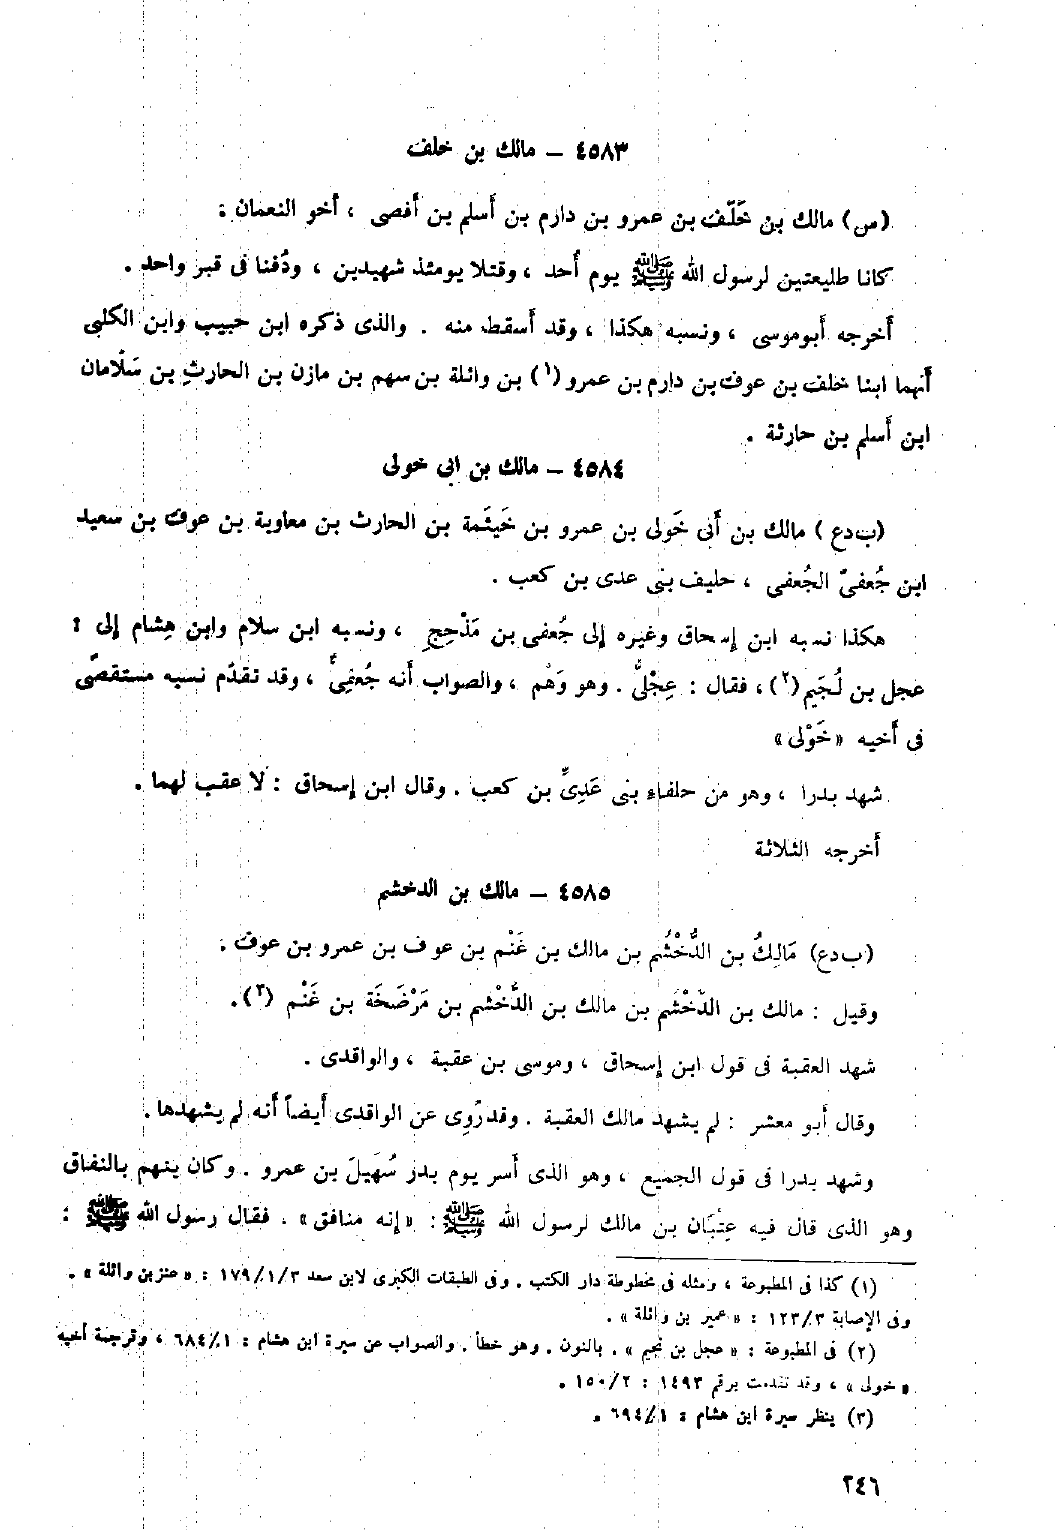 ٤٥٨٣ – مالك بن خلف
(س) مالك بن خَلَف بن عمرو بن دارم بن أسلم بن أفصى ، أخو النعمان :
كانا طليعتين لرسول الله ﷺ يوم أُحد ، وقتلا يومئذ شهيدين ، ودُفنا فى قبر واحد .
أخرجه أبوموسى ، ونسبه هكذا ، وقد أسقط منه . والذى ذكره ابن حبيب وابن الكلبى
أنهما ابنا خلف بن عوف بن دارم بن عمرو (١) بن وائلة بن سهم بن مازن بن الحارث بن سَلَامان
ابن أسلم بن حارثة .
٤٥٨٤ – مالك بن ابى خولى
(ب‌دع) مالك بن أَبى خَولى بن عمرو بن خَيثَمة بن الحارث بن معاوية بن عوف بن سعيد
ابن جُعفىّ الجُعفى ، حليف بنى عدى بن كعب .
هكذا نسبه ابن إسحاق وغيره إلى جُعفى بن مَذْحِجِ ، ونسبه ابن سلام وابن هِشام إلى :
عجل بن لُجَيم (٢) ، فقال : عِجْلىٌّ . وهو وَهْم ، والصواب أنه جُعفِىٌّ ، وقد تقدّم نسبه مستقصًى
فى أخيه «خَوْلى»
شهد بدرا ، وهو من حلفاء بنى عَدِىِّ بن كعب . وقال ابن إسحاق : لا عقب لهما .
أخرجه الثلاثة
٤٥٨٥ – مالك بن الدخشم
(ب‌دع) مَالِكُ بن الدُّخْشُم بن مالك بن غَنْم بن عوف بن عمرو بن عوف .
وقيل : مالك بن الدَّخْشَم بن مالك بن الدَّخْشم بن مَرْضَخَة بن غَنْم (٣) .
شهد العقبة فى قول ابن إسحاق ، وموسى بن عقبة ، والواقدى .
وقال أبو معشر : لم يشهد مالك العقبة . وقد رُوِى عن الواقدى أيضاً أنه لم يشهدها .
وشهد بدرا فى قول الجميع ، وهو الذى أسر يوم بدر سُهَيلَ بن عمرو . وكان يتهم بالنفاق
وهو الذى قال فيه عِتْبَان بن مالك لرسول الله ﷺ : «إنه منافق» . فقال رسول الله ﷺ :
(١) كذا فى المطبوعة ، ومثله فى مخطوطة دار الكتب . وفى الطبقات الكبرى لابن سعد ١٧٩/١/٣ : « عنز بن وائلة » .
وفى الإصابة ١٢٣/٣ : « عمير بن وائلة » .
(٢) فى المطبوعة : « عجل بن نجيم » . بالنون . وهو خطأ . والصواب عن سيرة ابن هشام : ٦٨٤/١ ، وترجمة أخيه
« خولى » ، وقد تقدمت برقم ١٤٩٣ : ١٥٠/٢ .
(٣) ينظر سيرة ابن هشام : ٦٩٤/١ .
٢٤٦